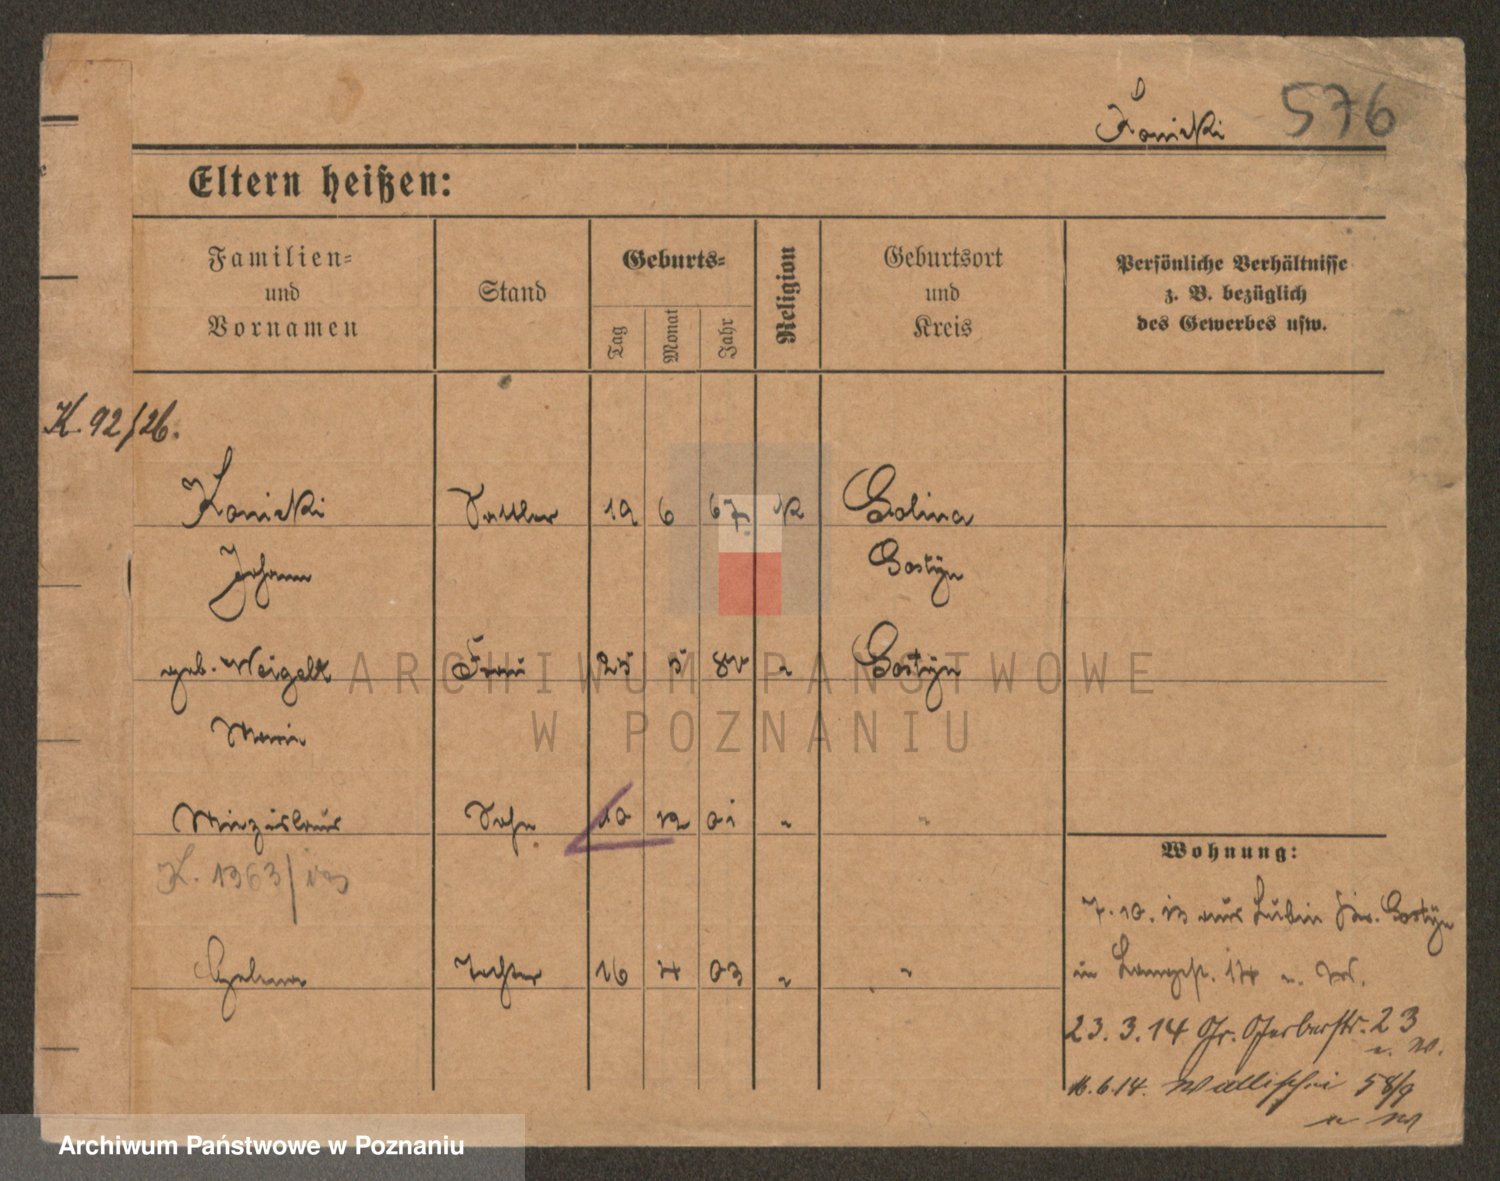 Konicki 576
Eltern heißen:
Familien=
und
Vornamen
Stand
Geburts=
Tag
Monat
Jahr
Religion
Geburtsort
und
Kreis
Persönliche Verhältnisse
z. B. bezüglich
des Gewerbes usw.
K. 92/26.
Konicki Sattler 19 6 67 k Golina
Johann Gostÿn
geb. Weigelt Frau 25 5 Gostÿn
Maria
Miezislaus Sohn 10 12 01 "
K. 1363/
Tochter 16 4 03 " "
Wohnung:
7. 10. 13 aus Lubin Kr. Gostÿn
in Langestr. 14
23. 3. 14 Gr. Gerberstr. 23
16. 6. 14. Wallischei 58/9
ARCHIWUM PAŃSTWOWE
W POZNANIU
Archiwum Państwowe w Poznaniu